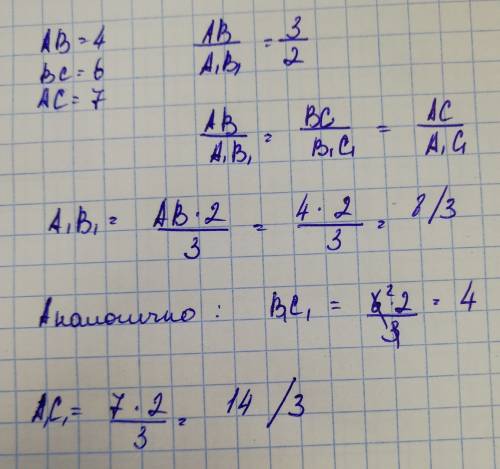 AB = 4
BC = 6
AC = 7
AB/A₁B₁ = 3/2
AB/A₁B₁ = BC/B₁C₁ = AC/A₁C₁
A₁B₁ = AB · 2/3 = 4 · 2/3 = 8/3
Аналогично : B₁C₁ = 6² · 2/3₁ = 4
A₁C₁ = 7 · 2/3 = 14/3